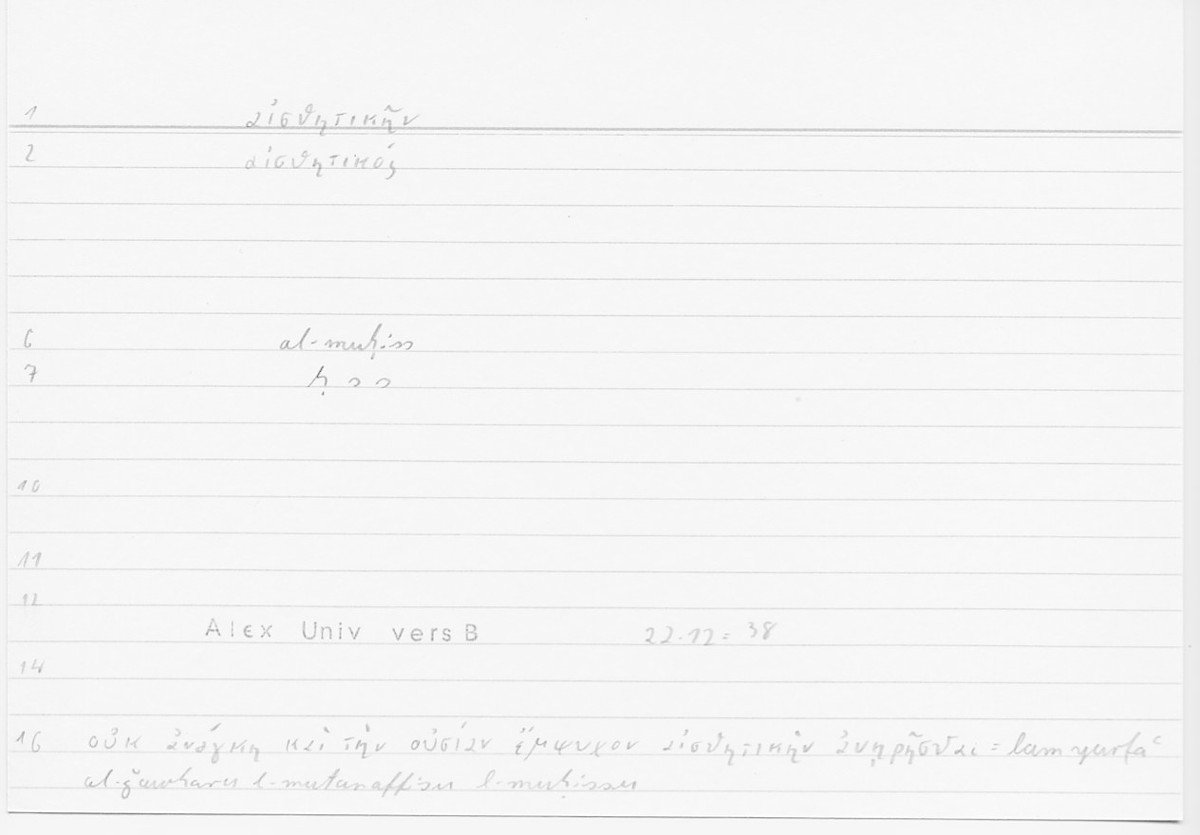 1 αἰσθητικῆν
2 αἰσθητικός
6 al-muḥiss
7 ḥ s s
10
11
12
Alex Univ vers B 22.12 = 38
14
16 οὐκ ἀνάγκη καὶ τὴν οὐσίαν ἔμψυχον αἰσθητικὴν ἀνῃρῆσθαι = lam yurfaʿ
al-ǧawharu l-mutanaffisu l-muḥissu